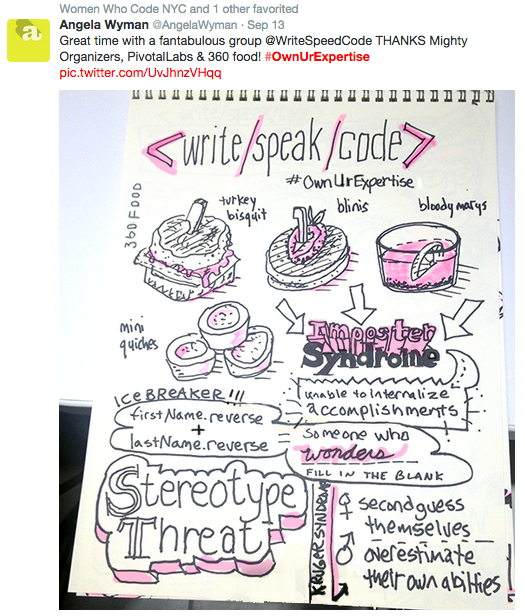 Women Who Code NYC and 1 other favorited
Angela Wyman @AngelaWyman · Sep 13
Great time with a fantabulous group @WriteSpeedCode THANKS Mighty
Organizers, PivotalLabs & 360 food! #OwnUrExpertise
pic.twitter.com/UvJhnzVHqq
a
<write/speak/code>
#OwnUrExpertise
360 FOOD
turkey
bisquit
blinis
bloody marys
mini
quiches
Imposter
Syndrome
unable to internalize
accomplishments
ICEBREAKER!!!
firstName.reverse
+
lastName.reverse
someone who
wonders
FILL IN THE BLANK
Stereotype
Threat
KRUGER SYNDROME
♀ second guess
themselves
♂ overestimate
their own abilities